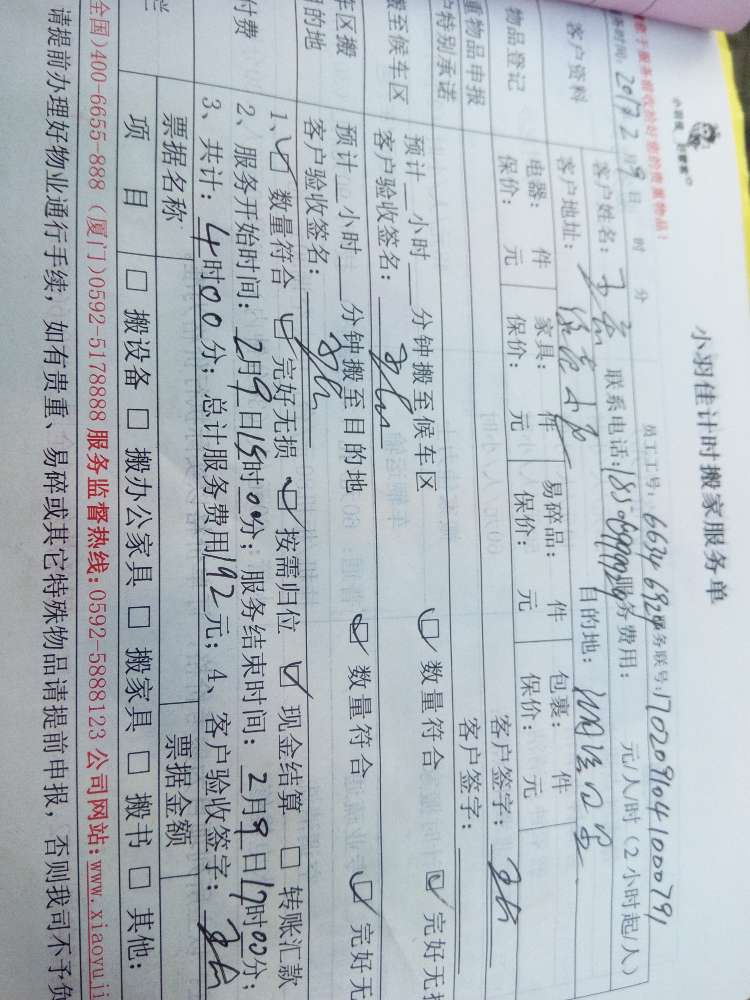 小羽佳计时搬家服务单
员工工号: 6634 6924 服务联号:1702091041000791
时间: 2017 2月9日 时 分
客户资料
客户姓名: 联系电话: 服务费用: 元/人/时(2小时起/人)
客户地址: 目的地:
物品登记
电器: 件 家具: 件 易碎品: 件 包裹: 件
保价: 元 保价: 元 保价: 元 保价: 元
重物品申报 客户签字:
户特别承诺 客户签字:
搬至候车区
预计 小时 分钟搬至候车区 ☑ 数量符合 ☑ 完好无损
客户验收签名:
车区搬
的地
预计 小时 分钟搬至目的地 ☑ 数量符合 ☑ 完好无
客户验收签名:
付费
1、☑ 数量符合 ☑ 完好无损 ☑ 按需归位 ☑ 现金结算 □ 转账汇款
2、服务开始时间: 2月9日15时00分; 服务结束时间: 2月9日17时00分;
3、共计: 4时00分; 总计服务费用192元; 4、客户验收签字:
票据名称 票据金额
项 目 □ 搬设备 □ 搬办公家具 □ 搬家具 □ 搬书 □ 其他:
全国)400-6655-888 (厦门)0592-5178888 服务监督热线:0592-5888123 公司网站:www.xiaoyuji
请提前办理好物业通行手续, 如有贵重、易碎或其它特殊物品请提前申报, 否则我司不予负